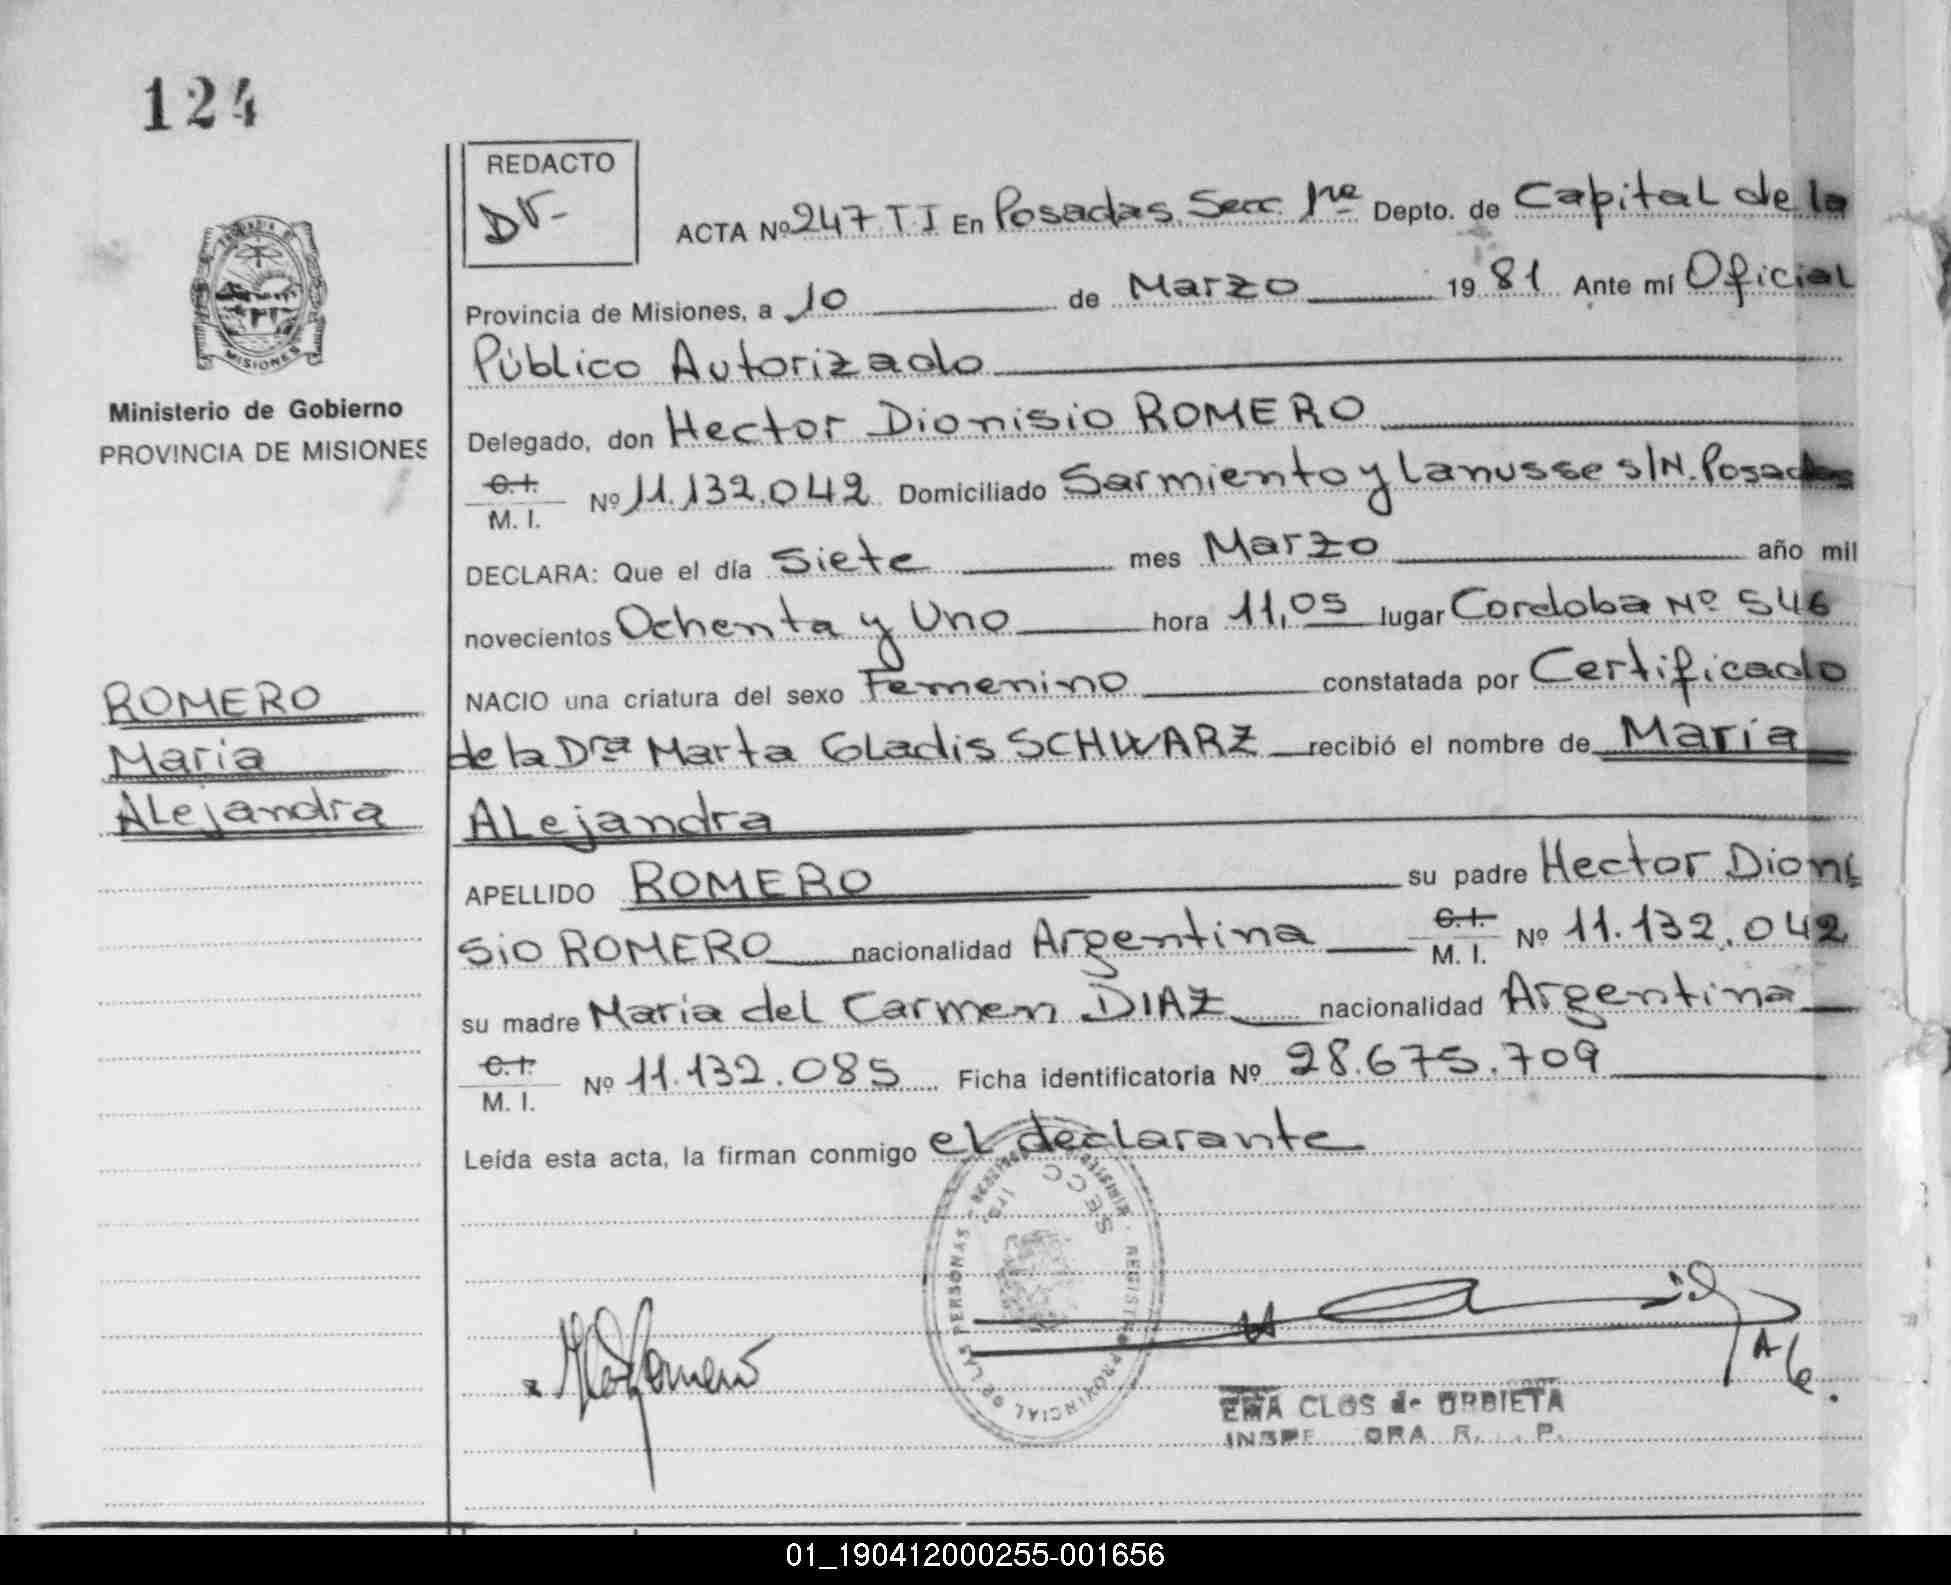 124
REDACTO
DV-
ACTA Nº 247 T I En Posadas Secc 1ra Depto. de Capital de la
Provincia de Misiones, a 10 de Marzo 1981 Ante mí Oficial
Público Autorizado
Delegado, don Hector Dionisio ROMERO
C.I.
M. I. Nº 11.132.042 Domiciliado Sarmiento y Lanusse s/N. Posadas
DECLARA: Que el día Siete mes Marzo año mil
novecientos Ochenta y Uno hora 11,05 lugar Cordoba Nº 546
NACIO una criatura del sexo Femenino constatada por Certificado
de la Dra Marta Gladis SCHWARZ recibió el nombre de María
Alejandra
APELLIDO ROMERO su padre Hector Dioni
sio ROMERO nacionalidad Argentina C.I.
M. I. Nº 11.132.042
su madre Maria del Carmen DIAZ nacionalidad Argentina
C.I.
M. I. Nº 11.132.085 Ficha identificatoria Nº 28.675.709
Leída esta acta, la firman conmigo el declarante
MISIONES
Ministerio de Gobierno
PROVINCIA DE MISIONES
ROMERO
Maria
Alejandra
SECC 1ra
REGISTRO PROVINCIAL DE LAS PERSONAS
EMA CLOS de URBIETA
01_190412000255-001656